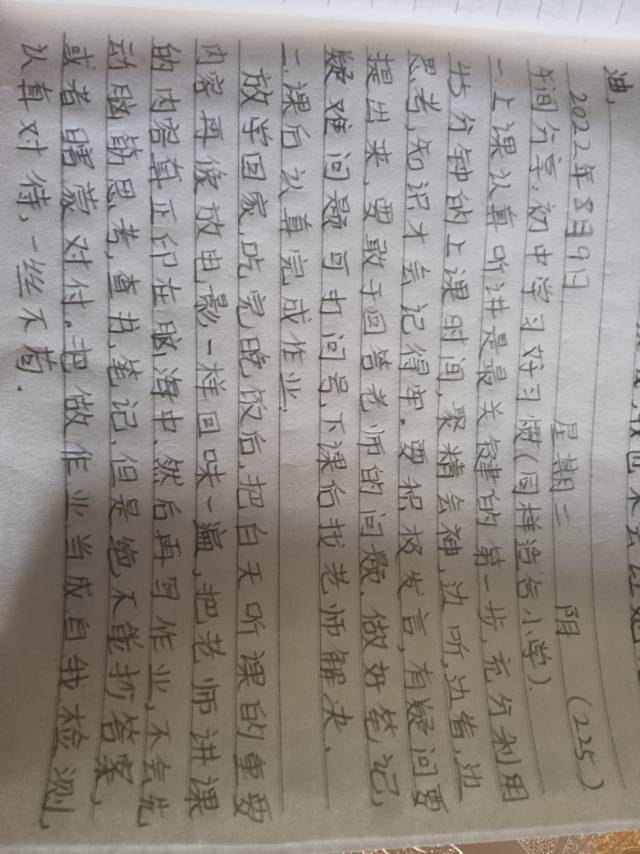 迪,
2022年8月9日 星期二 阴 (225)
午间分享:初中学习好习惯(同样适合小学).
一.上课认真听讲是最关键的第一步,充分利用
45分钟的上课时间,聚精会神,边听,边看,边
思考,知识才会记得牢。要积极发言,有疑问要
提出来,要敢于回答老师的问题.做好笔记,
疑难问题可打问号,下课后找老师解决、
二.课后认真完成作业,
放学回家,吃完晚饭后,把白天听课的重要
内容再像放电影一样回味一遍,把老师讲课
的内容真正印在脑海中.然后再写作业,不会先
动脑筋思考,查书,笔记,但是绝不能抄答案,
或者瞎蒙对付。把做作业当成自我检测,
认真对待,一丝不苟.